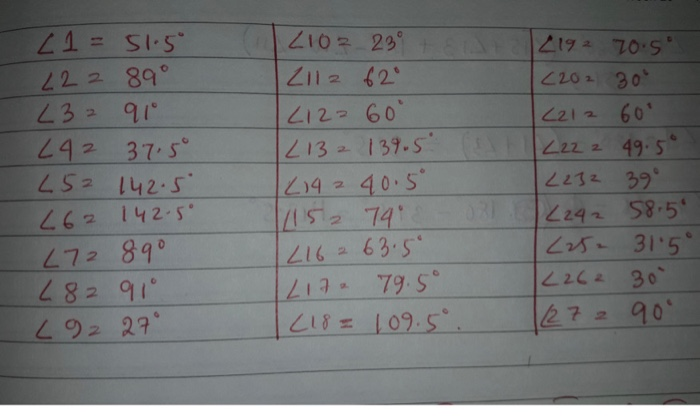 ∠1 = 51.5°
∠2 = 89°
∠3 = 91°
∠4 = 37.5°
∠5 = 142.5°
∠6 = 142.5°
∠7 = 89°
∠8 = 91°
∠9 = 27°
∠10 = 23°
∠11 = 62°
∠12 = 60°
∠13 = 139.5°
∠14 = 40.5°
∠15 = 74°
∠16 = 63.5°
∠17 = 79.5°
∠18 = 109.5°.
∠19 = 70.5°
∠20 = 30°
∠21 = 60°
∠22 = 49.5°
∠23 = 39°
∠24 = 58.5°
∠25 = 31.5°
∠26 = 30°
∠27 = 90°